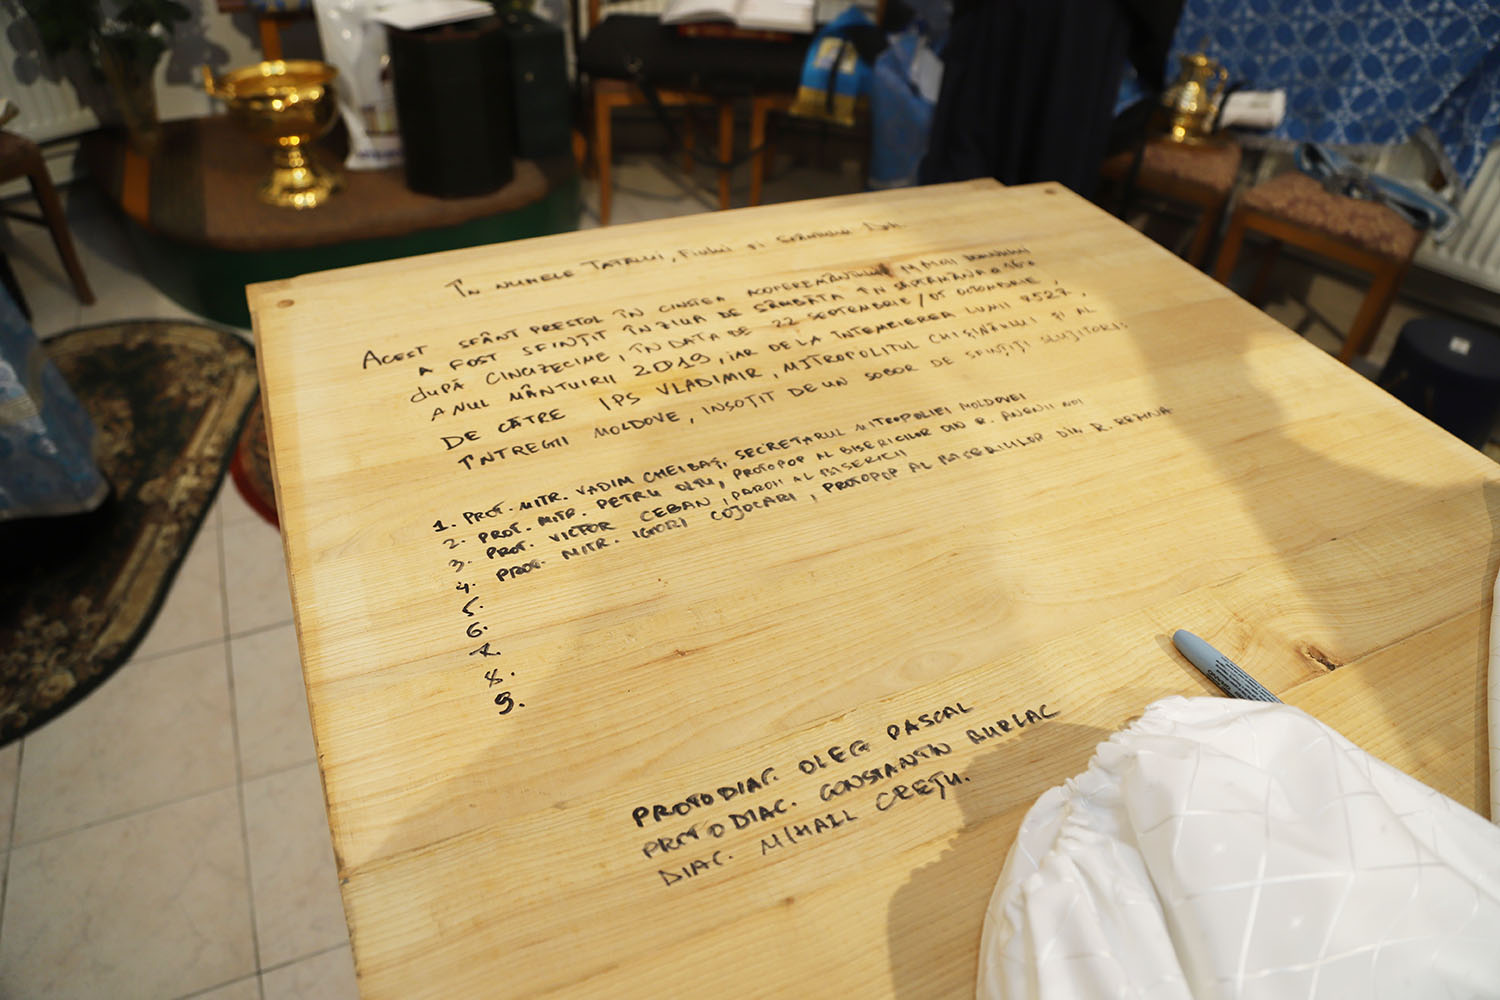 În numele Tatălui, Fiului și Sfântului Duh.
Acest sfânt prestol în cinstea Acoperemântului Maicii Domnului
a fost sfințit în ziua de sâmbăta în săptămâna a 14-a
după Cincizecime, în data de 22 septembrie/05 octombrie,
anul mântuirii 2019, iar de la întemeierea lumii 7527,
de către IPS Vladimir, Mitropolitul Chișinăului și al
întregii Moldove, însoțit de un sobor de sfințiți slujitori:
1. Prot. mitr. Vadim Cheibaș, secretarul Mitropoliei Moldovei
2. Prot. mitr. Petru , protopop al bisericilor din r. Anenii Noi
3. Prot. Victor Ceban, paroh al bisericii
4. Prot. mitr. Igori Cojocari, protopop al bisericilor din r. Rezina
5.
6.
7.
8.
9.
Protodiac. Oleg Pascal
Protodiac. Constantin Burlac
Diac. Mihail Crețu.